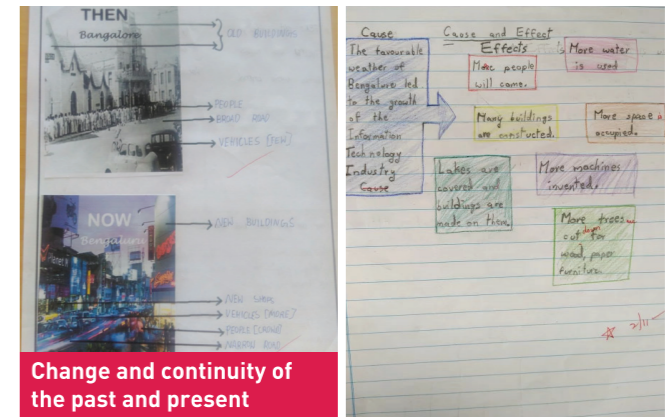 THEN
Bangalore
OLD BUILDINGS
PEOPLE
BROAD ROAD
VEHICLES [FEW]
NOW
Bengaluru
NEW BUILDINGS
NEW SHOPS
VEHICLES [MORE]
PEOPLE [CROWD]
NARROW ROAD
Change and continuity of
the past and present
Cause and Effect
Cause
The favourable
weather of
Bengaluru led
to the growth
of the
Information
Technology
Industry
Cause
Effects
More people
will come.
More water
is used
Many buildings
are constucted.
More space is
occupied.
Lakes are
covered and
buildings are
made on them.
More machines
invented.
More trees
cut down for
wood, paper
furniture.
2/11